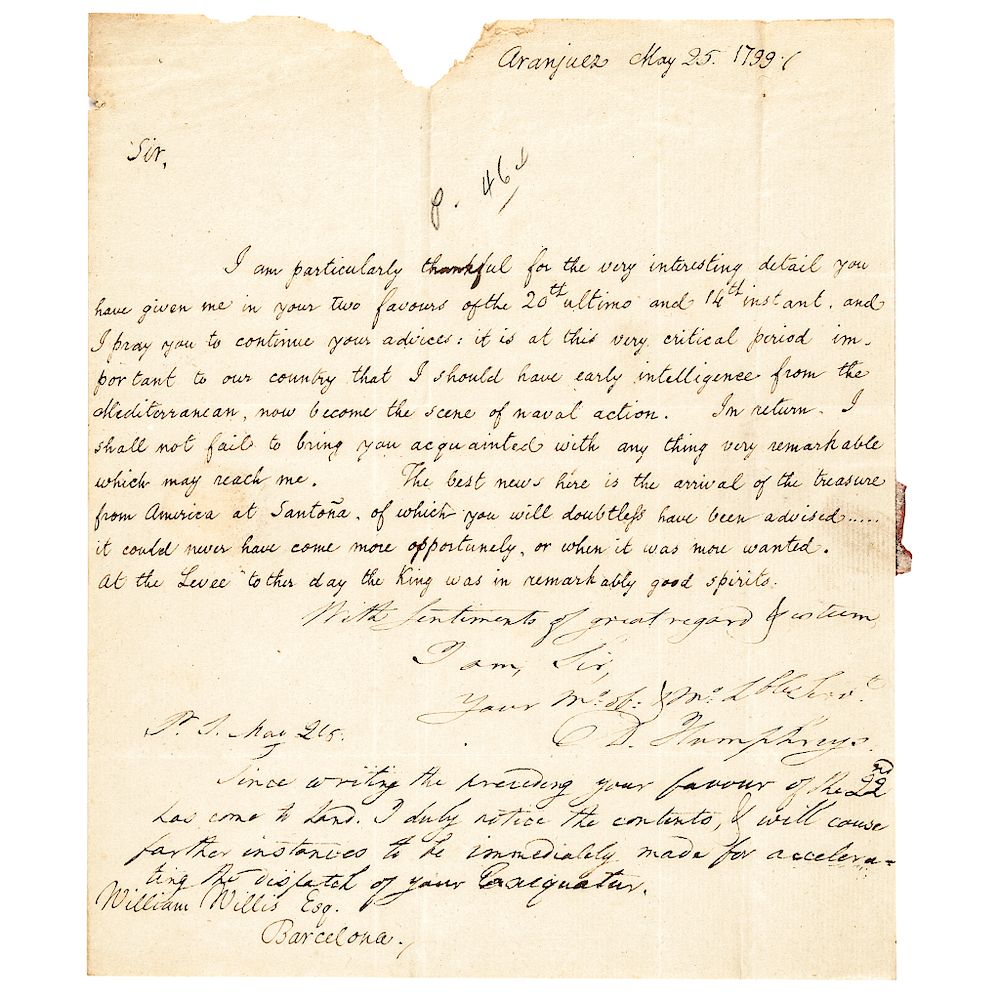 Aranjuez May 25. 1799.
Sir,
I am particularly thankful for the very interesting detail you
have given me in your two favours of the 20th ultimo and 14th instant. and
I pray you to continue your advices: it is at this very critical period im-
portant to our country that I should have early intelligence from the
Mediterranean, now become the scene of naval action. In return. I
shall not fail to bring you acquainted with any thing very remarkable
which may reach me. The best news here is the arrival of the treasure
from America at Santoña. of which you will doubtless have been advised.....
it could never have come more opportunely, or when it was more wanted.
At the Levee t'other day the King was in remarkably good spirits.
With sentiments of great regard & esteem
I am, Sir,
Your Mo. ob: & Mo.
D. Humphreys.
P. S. May 26.
Since writing the preceding your favour of the 22nd
has come to hand. I duly notice the contents, & will cause
farther instances to be immediately made for accelera-
ting the dispatch of your Exequatur.
William Willis Esq.
Barcelona.